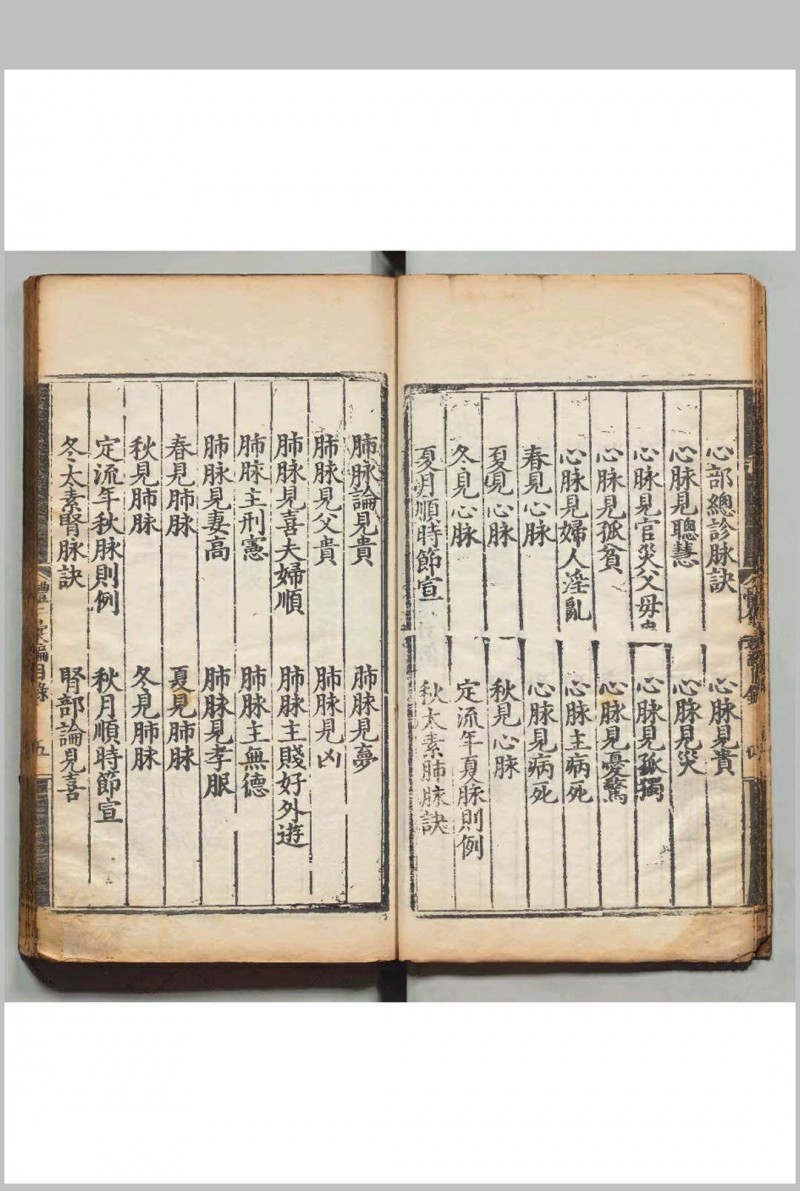 心部總診脉訣 心脉見貴
心脉見聰慧 心脉見災
心脉見官災父母 心脉見孤獨
心脉見孤貧 心脉見憂驚
心脉見婦人淫亂 心脉主病死
春見心脉 心脉見病死
夏見心脉 秋見心脉
冬見心脉 定流年夏脉則例
夏月順時節宣 秋太素肺脉訣
肺脉論見貴 肺脉見夢
肺脉見父貴 肺脉見凶
肺脉見喜夫婦順 肺脉主賤好外遊
肺脉主刑憲 肺脉主無德
肺脉見妻高 肺脉見孝服
春見肺脉 夏見肺脉
秋見肺脉 冬見肺脉
定流年秋脉則例 秋月順時節宣
冬太素腎脉訣 腎部論見喜
編目錄 五